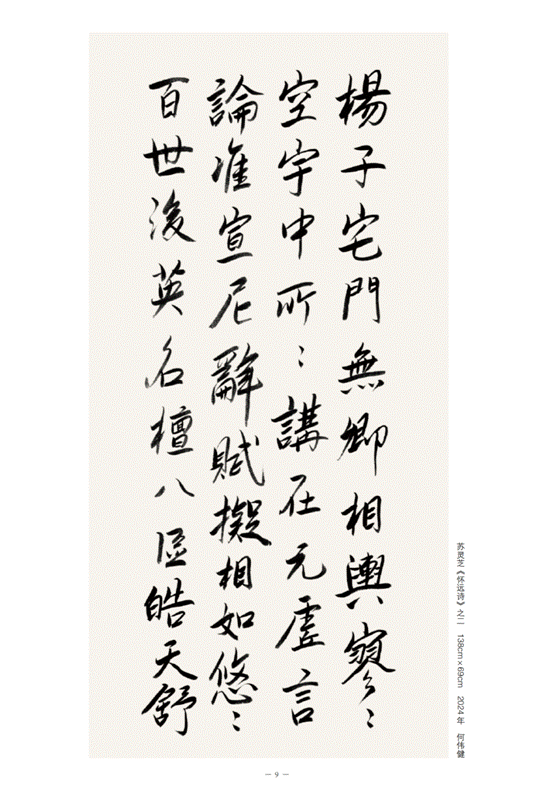 楊子宅門無卿相輿寥〻
空宇中所〻講在元虛言
論准宣尼辭賦擬相如悠〻
百世後英名擅八區皓天舒
苏灵芝《怀远诗》之二 138cm×69cm 2024年 何伟健
— 9 —